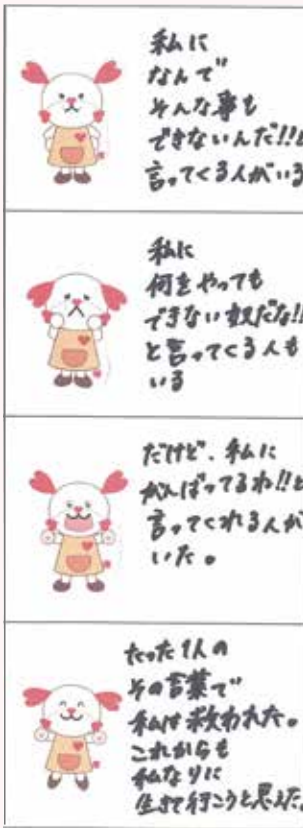 私に
なんで
そんな事も
できないんだ!!と
言ってくる人がいる
私に
何をやっても
できない奴だな!!
と言ってくる人も
いる
だけど、私に
がんばってるね!!と
言ってくれる人が
いた。
たった1人の
その言葉で
私は救われた。
これからも
私なりに
生きて行こうと思えた。